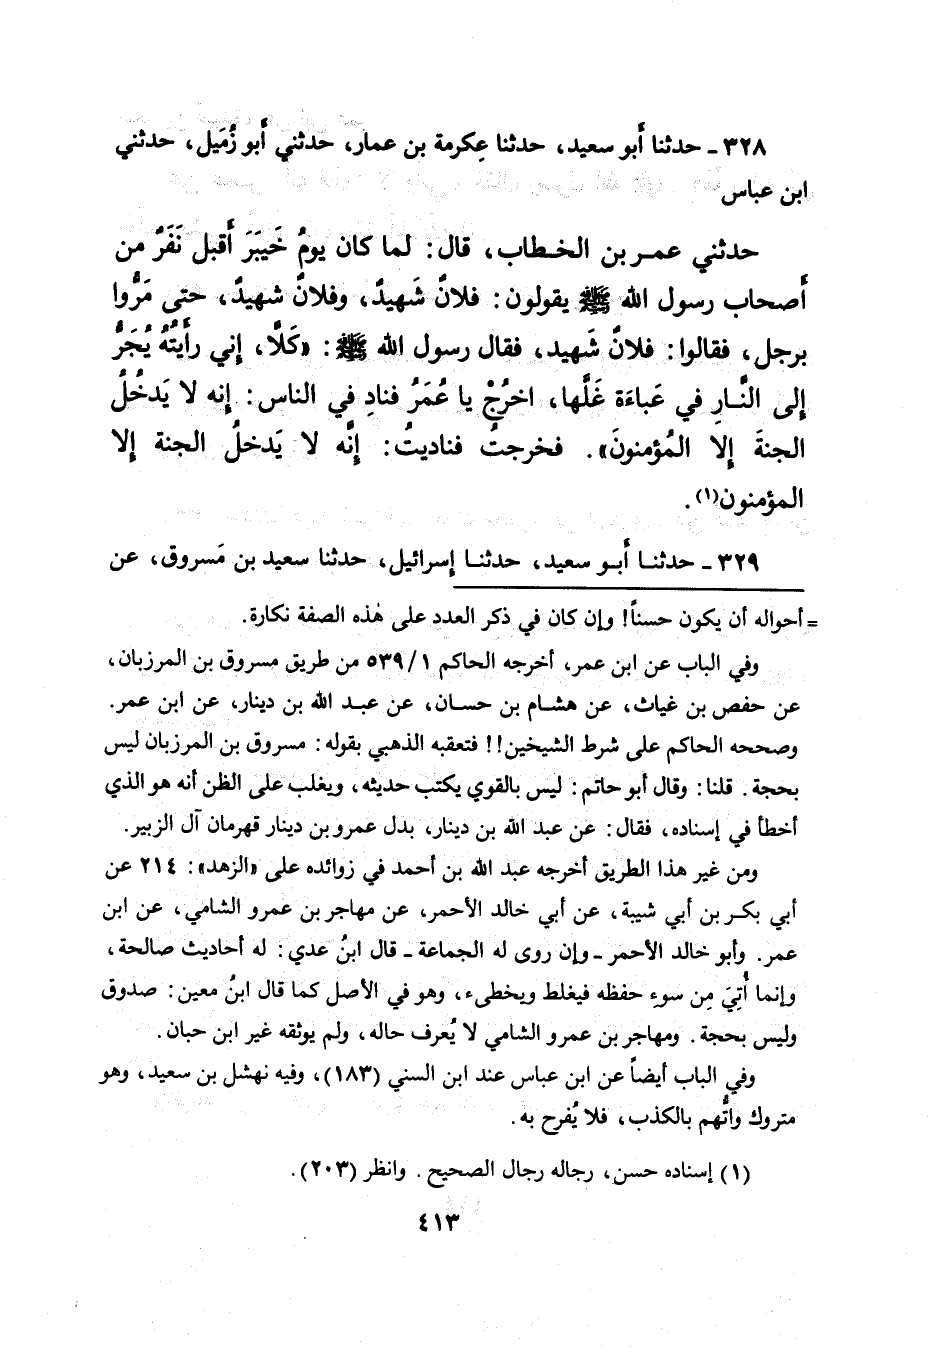 ٣٢٨ ـ حدثنا أَبو سعيد، حدثنا عِكرمة بن عمار، حدثني أَبو زُمَيل، حدثني
ابن عباس
حدثني عمـر بن الخـطاب، قال: لما كان يومُ خَيبَرَ أَقبل نَفَرٌ من
أَصحاب رسول الله ﷺ يقولون: فلانٌ شَهيدٌ، وفلانٌ شهيدٌ، حتى مَرُّوا
برجل، فقالوا: فلانٌ شَهيد، فقال رسول الله ﷺ: «كَلَّا، إني رأَيتُهُ يُجَرُّ
إلى النَّـارِ في عَباءَة غَلَّها، اخرُجْ يا عُمَرُ فنادِ في الناس: إنه لا يَدخُلُ
الجنةَ إلا المُؤمنونَ». فخرجتُ فناديتُ: إنَّه لا يَدخلُ الجنة إلا
المؤمنون(١).
٣٢٩ ـ حدثنـا أَبـو سعيد، حدثنـا إسرائيل، حدثنا سعيد بن مَسروق، عن
= أحواله أن يكون حسناً! وإن كان في ذكر العدد على هٰذه الصفة نكارة.
وفي الباب عن ابن عمر، أخرجه الحاكم ٥٣٩/١ من طريق مسروق بن المرزبان،
عن حفص بن غياث، عن هشـام بن حسـان، عن عبـد الله بن دينار، عن ابن عمر.
وصححه الحاكم على شرط الشيخين!! فتعقبه الذهبي بقوله: مسروق بن المرزبان ليس
بحجة. قلنا: وقال أبو حاتم: ليس بالقوي يكتب حديثه، ويغلب على الظن أنه هو الذي
أخطأ في إسناده، فقال: عن عبد الله بن دينار، بدل عمرو بن دينار قهرمان آل الزبير.
ومن غير هذا الطريق أخرجه عبد الله بن أحمد في زوائده على «الزهد»: ٢١٤ عن
أبي بكـر بن أبي شيبة، عن أبي خالد الأحمر، عن مهاجر بن عمرو الشامي، عن ابن
عمر. وأبو خالد الأحمر ـ وإن روى له الجماعة ـ قال ابنُ عدي: له أحاديث صالحة،
وإنما أُتِيَ مِن سوءِ حفظه فيغلط ويخطىء، وهو في الأصل كما قال ابنُ معين: صدوق
وليس بحجة. ومهاجر بن عمرو الشامي لا يُعرف حاله، ولم يوثقه غير ابن حبان.
وفي الباب أيضاً عن ابن عباس عند ابن السني (١٨٣)، وفيه نهشل بن سعيد، وهو
متروك واتُّهم بالكذب، فلا يُفرح به.
(١) إسناده حسن، رجاله رجال الصحيح. وانظر (٢٠٣).
٤١٣